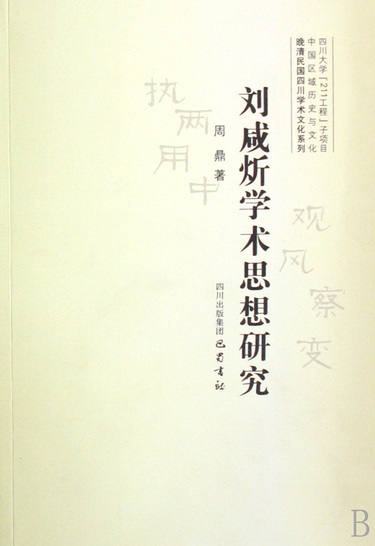 四川大学「211工程」子项目
中国区域历史与文化
晚清民国四川学术文化系列
刘咸炘学术思想研究
周鼎 著
四川出版集团 巴蜀书社
执两用中
观风察变
B